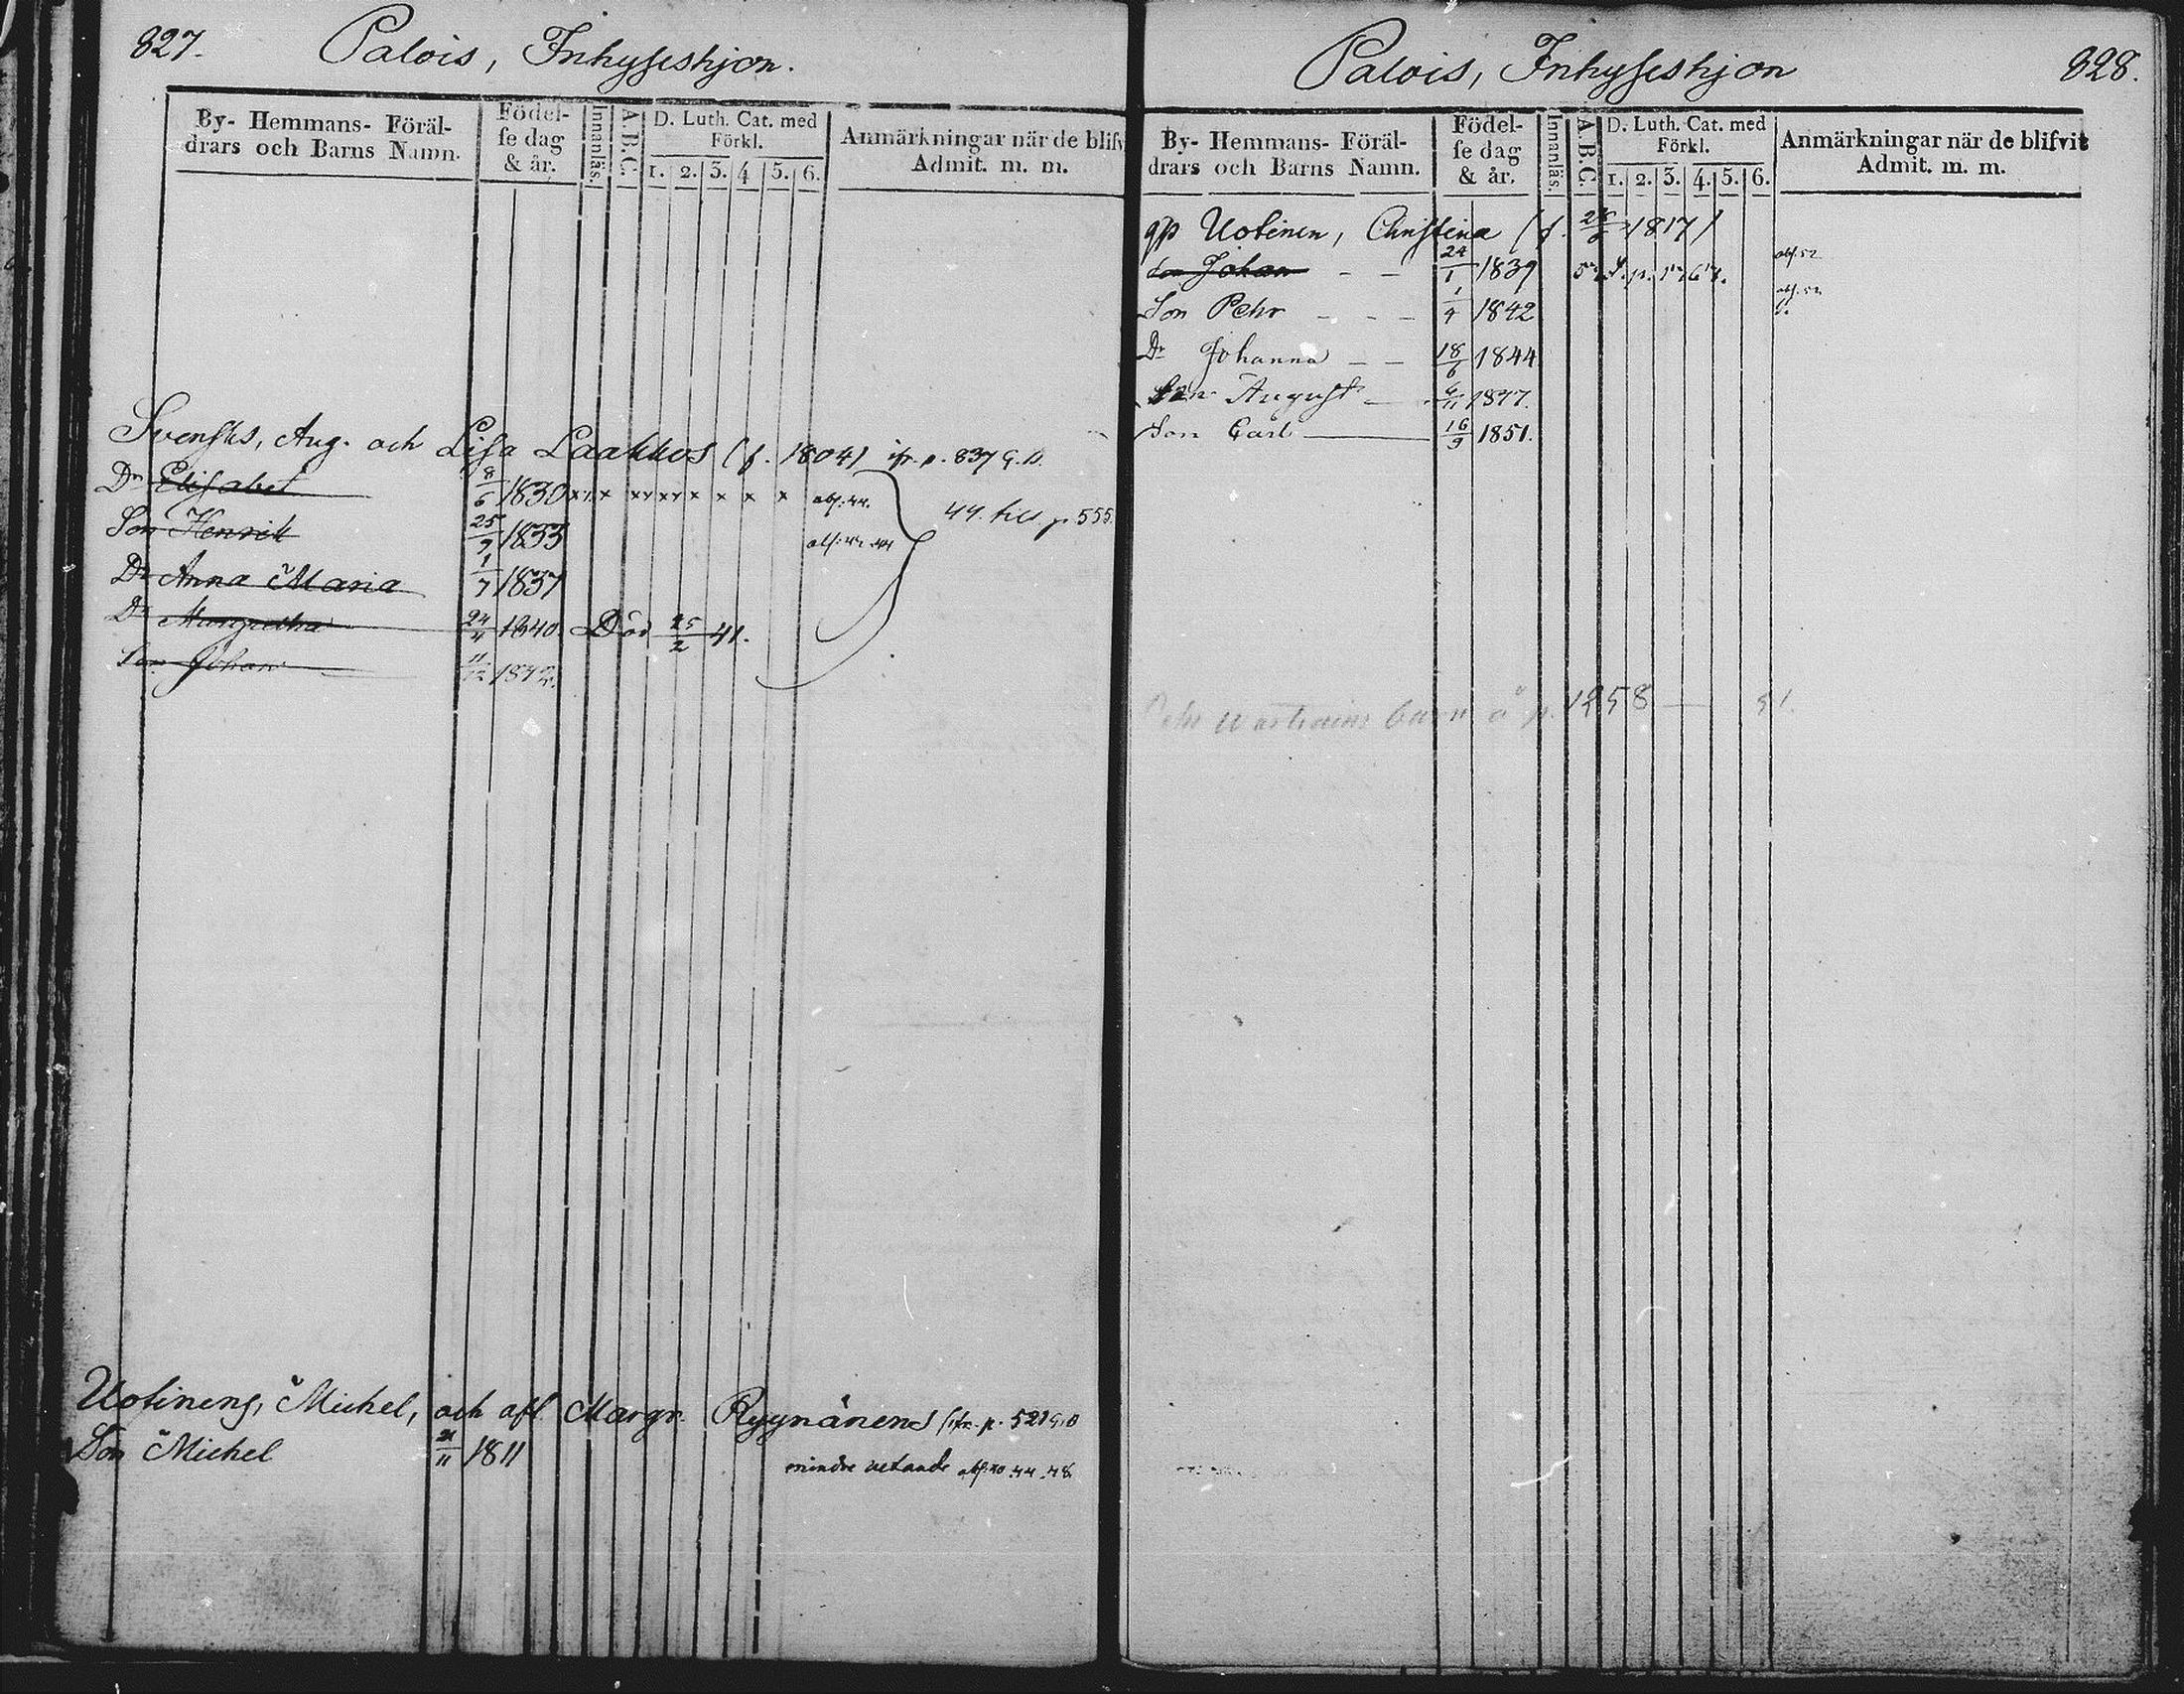 827.
Palois, Inhyseshjon.
By- Hemmans- Föräl-
drars och Barns Namn.
Födel-
se dag
& år.
Innanläs.
A.B.C.
D. Luth. Cat. med
Förkl.
1. 2. 3. 4 5. 6.
Anmärkningar när de blifv
Admit. m. m.
Svensks, Aug. och Lisa Laakkos (f. 1804) jfr. p. 837 G.B.
Dr Elisabet 8/6 1830 abs. 44.
Son Henrik 25/9 1833
44. till p 555.
Dr Anna Maria 1/7 1837
Dr Margretha 24/11 1840. Död 25/2 41.
Son Johan 11/12 1842.
Uotinens, Michel, och afl. Margr. Ryynänens (jfr. p. 521 G.B
Son Michel 21/11 1811
mindre vetande abs. 40.44.48.
Palois, Inhyseshjon
828.
By- Hemmans- Föräl-
drars och Barns Namn.
Födel-
se dag
& år.
Innanläs.
A.B.C.
D. Luth. Cat. med
Förkl.
1. 2. 3. 4. 5. 6.
Anmärkningar när de blifvit
Admit. m. m.
qp Uotinen, Christina (f. 1817)
Son Johan - - 24/1 1839 abs. 52
Son Pehr - - - 1/4 1842
Dr Johanna - - 18/6 1844
Son August - 6/11 1847.
Son Carl 16/9 1851.
barn å p. 1258 — 51.